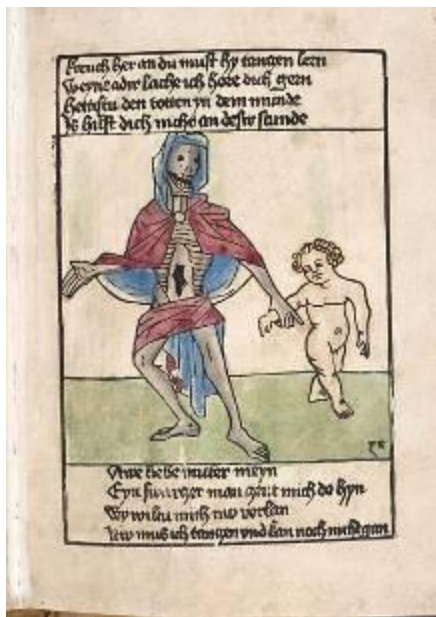 kreuch her an du must hy tanczen lern
weyne adir lache ich hore dich gern
hettistu den totten yn dem munde
is hilft dich nicht an desir stunde
Awe liebe muter meyn
Eyn swarczer man czeut mich do hyn
Wy wiltu mich nw vorlan
Nw mus ich tanczen und kan noch nicht gan